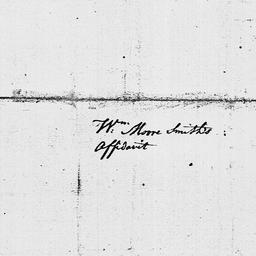 Wm: Moore Smith's
Affidavit